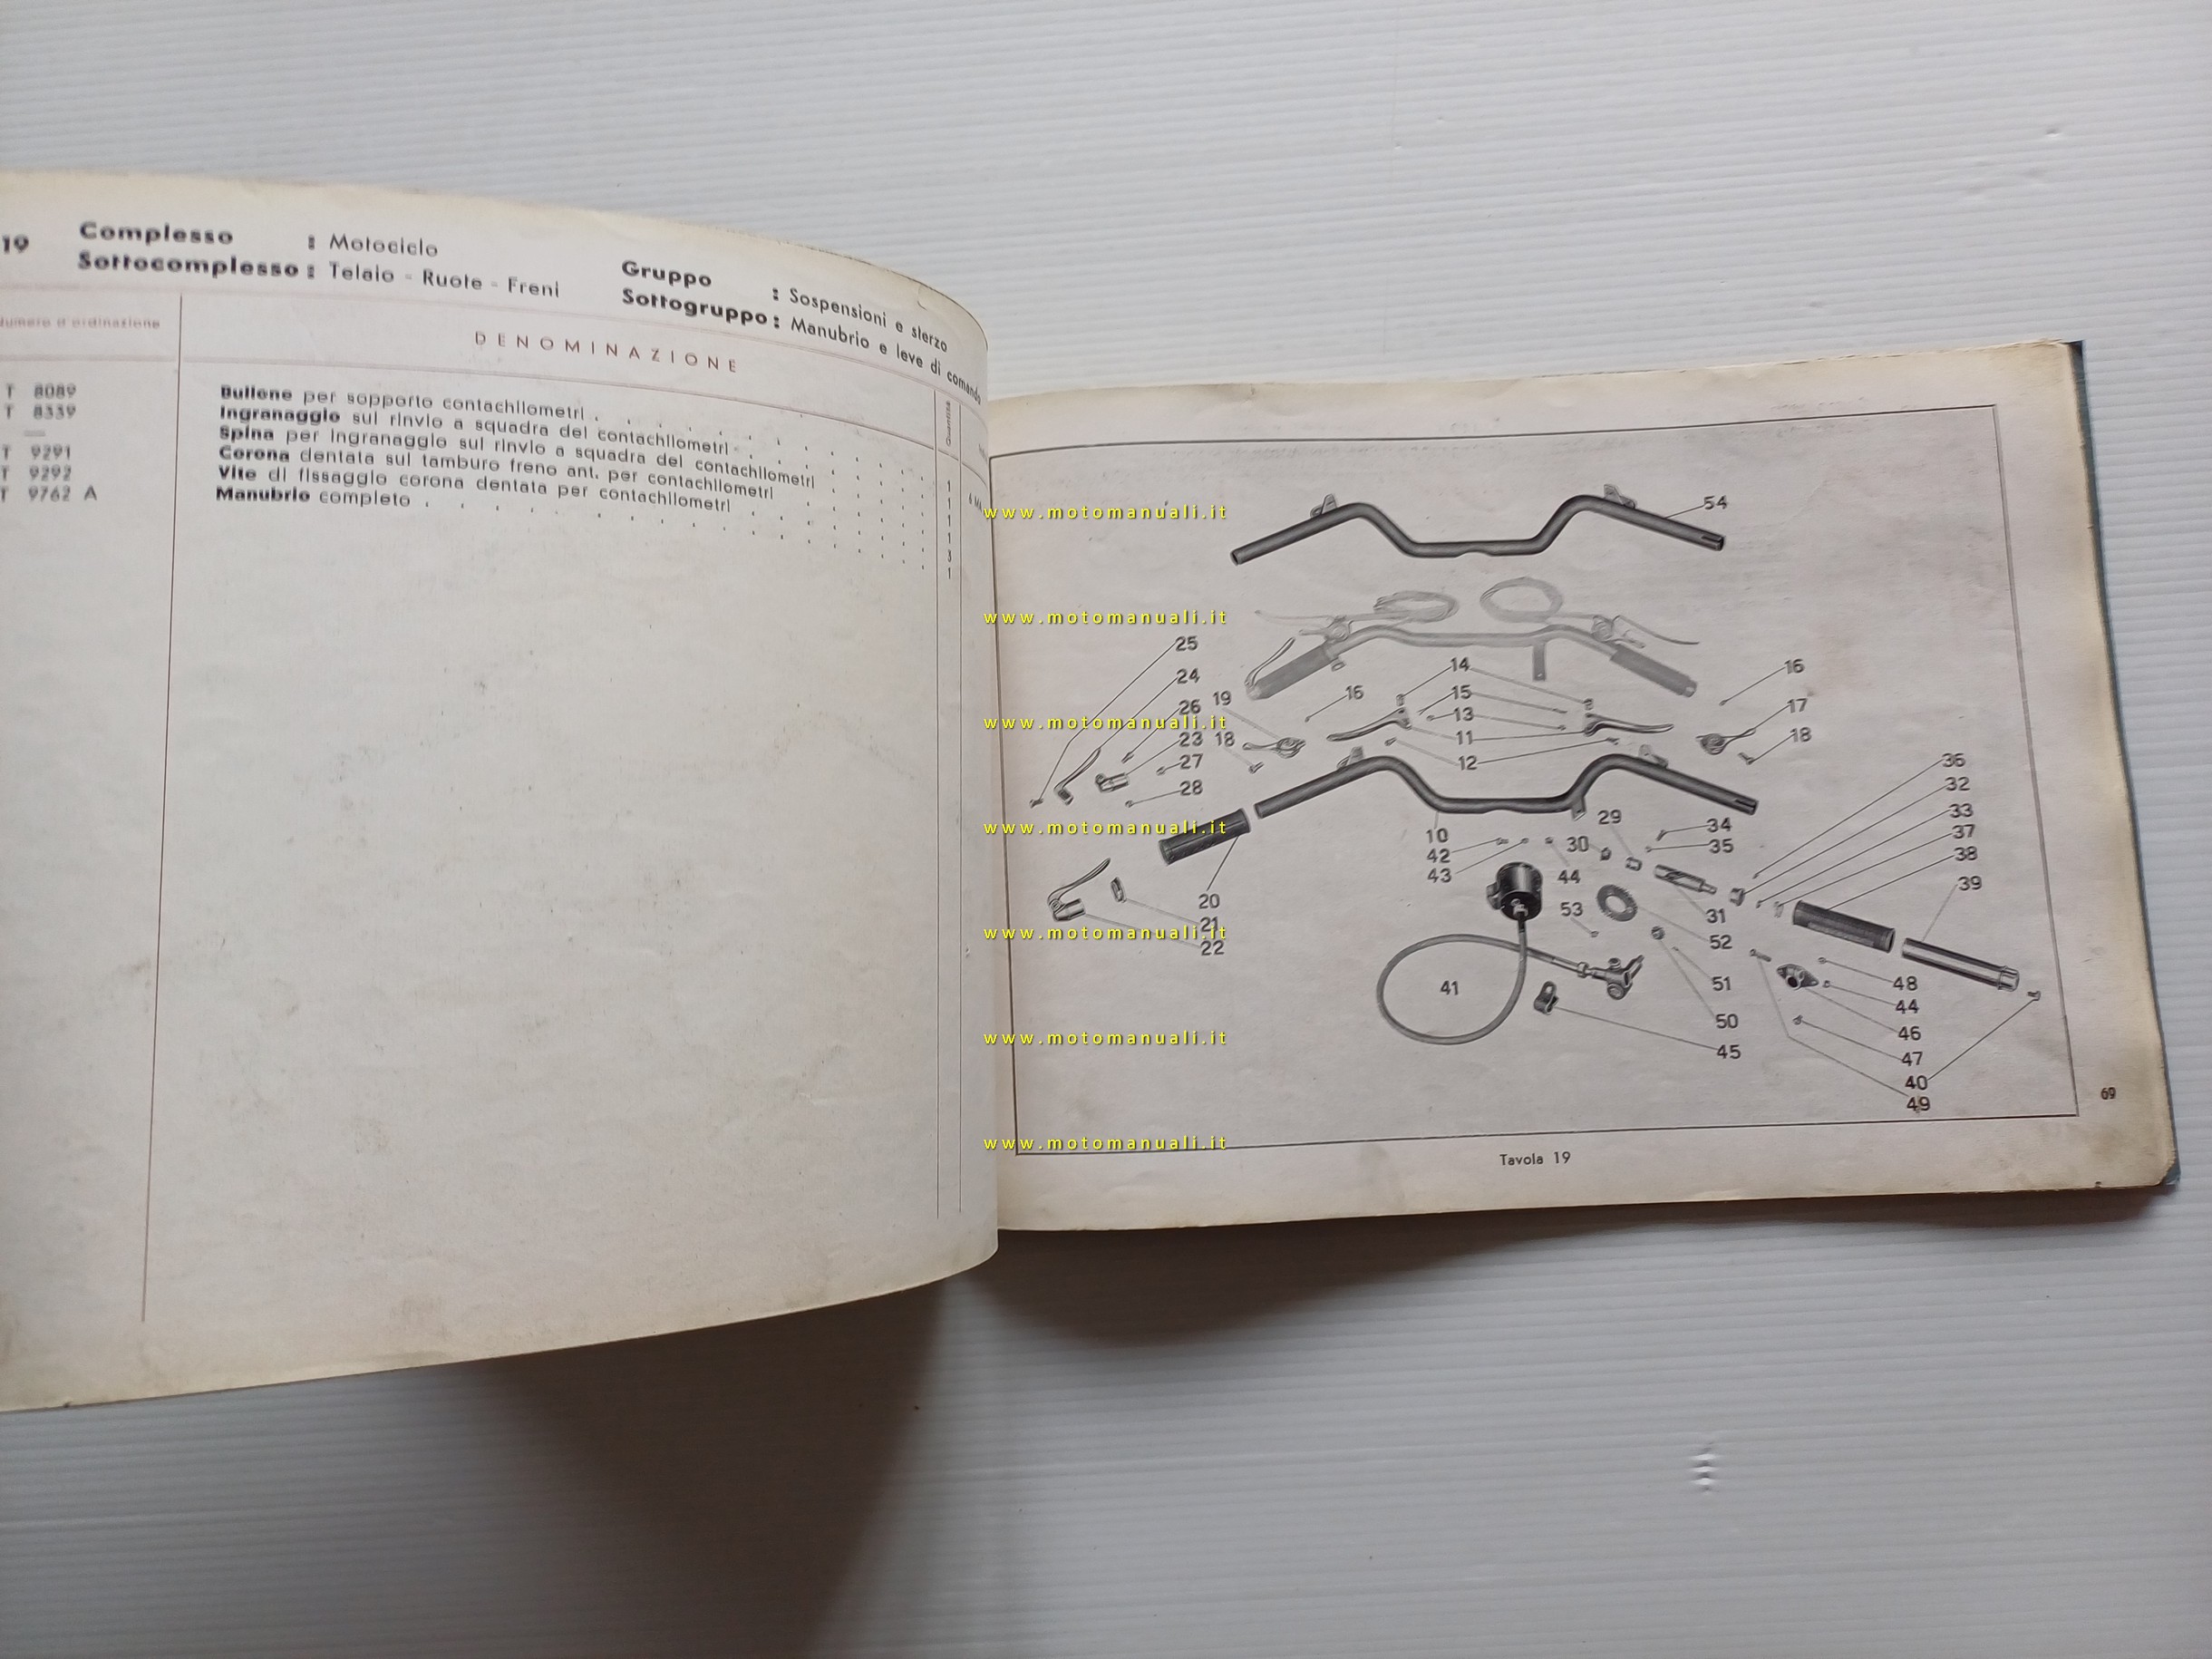 19
Complesso : Motociclo
Sottocomplesso : Telaio - Ruote - Freni
Gruppo : Sospensioni e sterzo
Sottogruppo : Manubrio e leve di comando
Numero d'ordinazione
DENOMINAZIONE
Quantità
T 8089 Bullone per sopporto contachilometri 1
T 8339 Ingranaggio sul rinvio a squadra del contachilometri 1
— Spina per ingranaggio sul rinvio a squadra del contachilometri 1
T 9291 Corona dentata sul tamburo freno ant. per contachilometri 1
T 9292 Vite di fissaggio corona dentata per contachilometri 3
T 9762 A Manubrio completo 1
54
25
24
26 19
23 18
27
28
16
14
15
13
11
12
16
17
18
10
42
43
29
30
44
53
34
35
31
52
51
50
45
36
32
33
37
38
39
20
21
22
41
48
44
46
47
40
49
Tavola 19
69
www.motomanuali.it
www.motomanuali.it
www.motomanuali.it
www.motomanuali.it
www.motomanuali.it
www.motomanuali.it
www.motomanuali.it